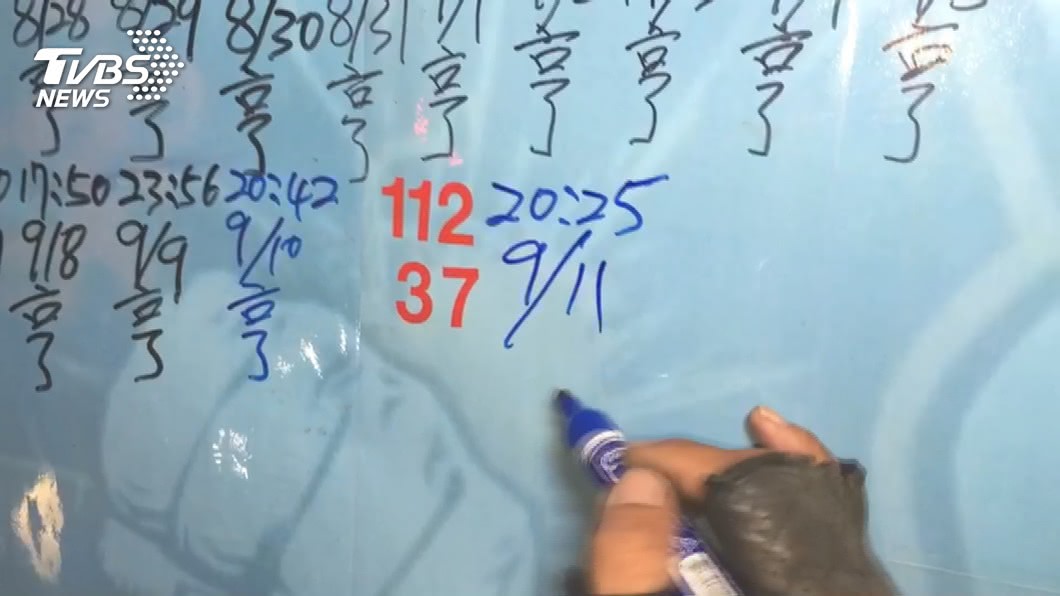 8/28 8/29 8/30 8/31
TVBS
NEWS
亨 亨 亨 亨 亨 亨 亨 亨 亨
17:50 23:56 20:42 112 20:25
9/8 9/9 9/10 37 9/11
亨 亨 亨